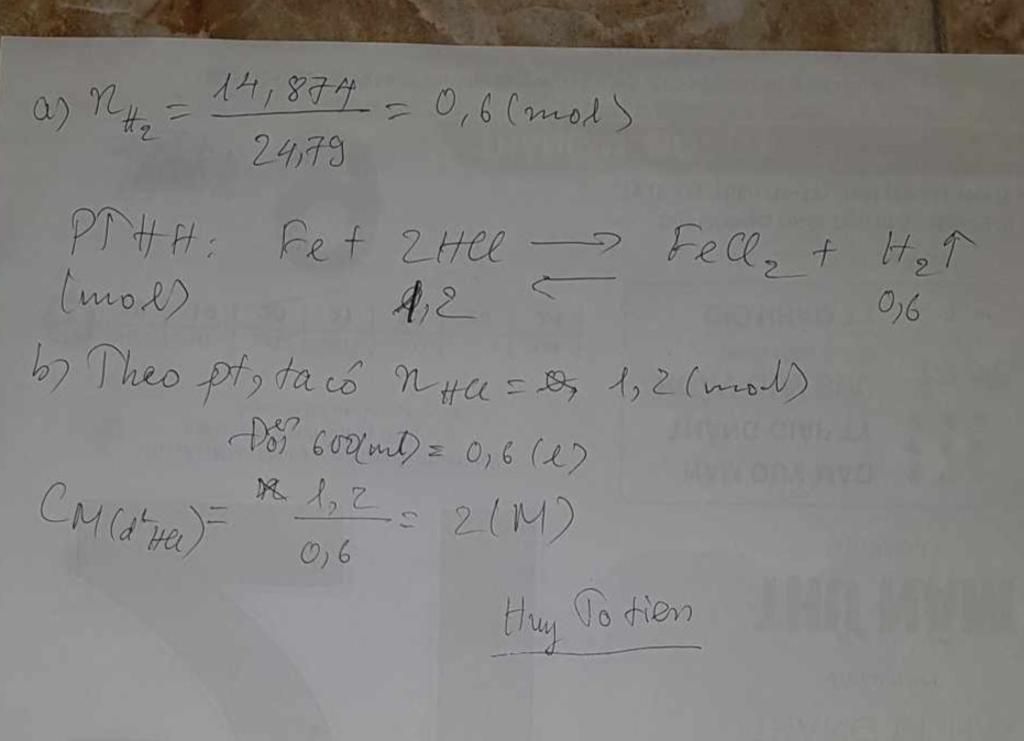 a) n H₂ = 14,874 / 24,79 = 0,6 (mol)
PTHH: Fe + 2HCl ⟶ FeCl₂ + H₂↑
(mol) 1,2 ⟵ 0,6
b) Theo pt, ta có n HCl = 1,2 (mol)
Đổi 600(ml) = 0,6 (l)
C M(d² HCl) = 1,2 / 0,6 = 2 (M)
Huy To tien